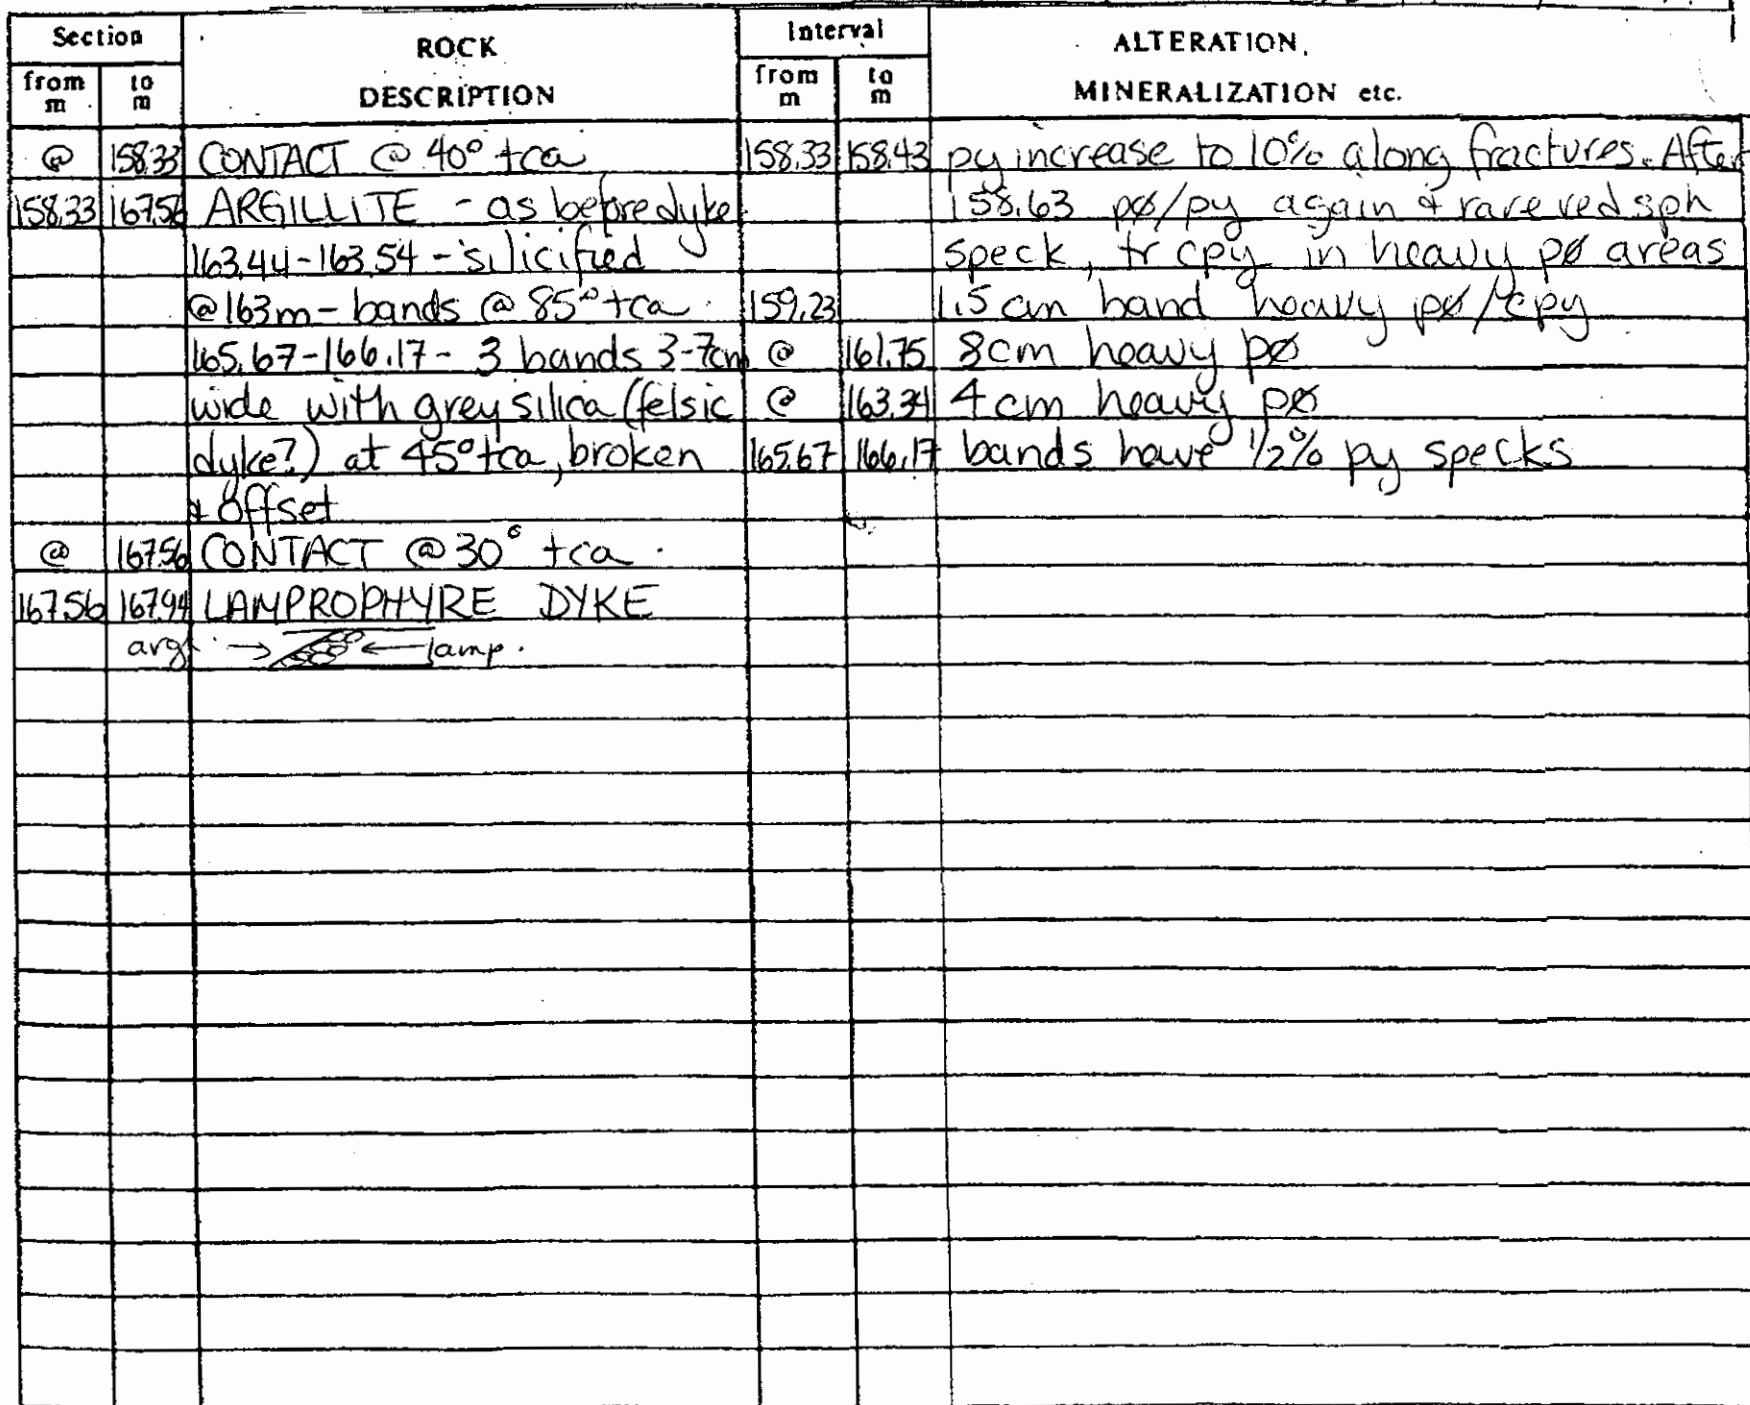 Section ROCK Interval ALTERATION,
from to DESCRIPTION from to MINERALIZATION etc.
m m m m
@ 158.33 CONTACT @ 40° tca 158.33 158.43 py increase to 10% along fractures. After
158.33 167.56 ARGILLITE - as before dyke 158.63 pø/py again & rare red sph
163.44-163.54 - silicified speck, tr cpy in heavy pø areas
@ 163m - bands @ 85° tca 159.23 1.5 cm band heavy pø/cpy
165.67-166.17 - 3 bands 3-7cm @ 161.75 8cm heavy pø
wide with grey silica (felsic @ 163.34 4cm heavy pø
dyke?) at 45° tca, broken 165.67 166.17 bands have 1/2% py specks
& offset
@ 167.56 CONTACT @ 30° tca
167.56 167.94 LAMPROPHYRE DYKE
arg. → ← lamp.